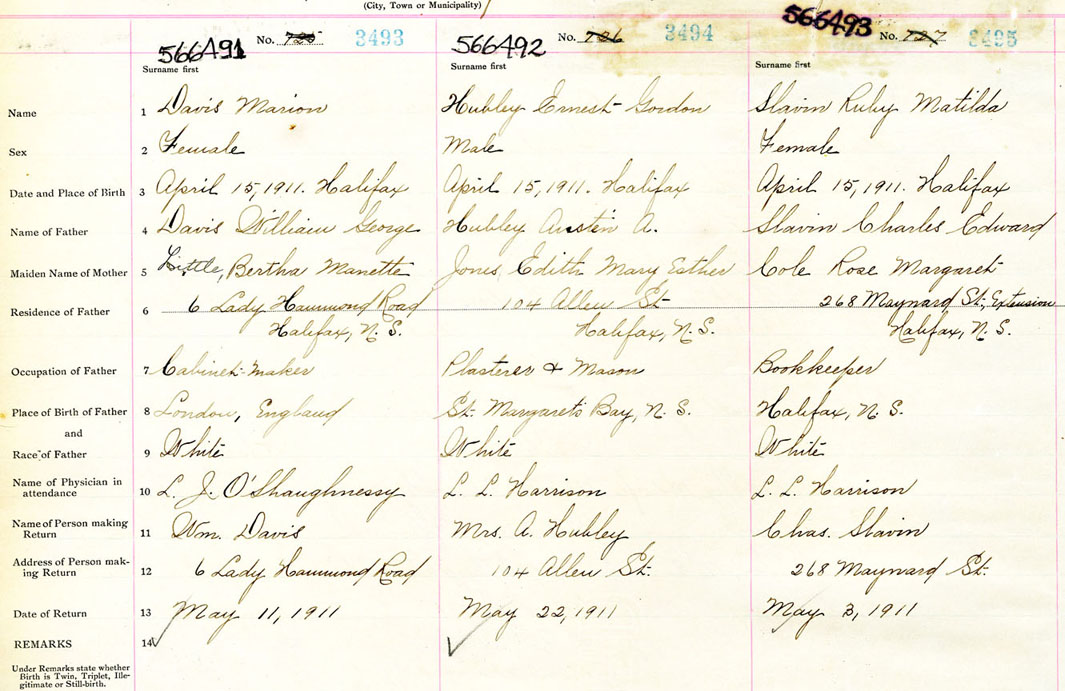 (City, Town or Municipality)
566491 No. 725 3493 566492 No. 726 3494 566493 No. 727 3495
Surname first Surname first Surname first
Name 1 Davis Marion Hubley Ernest Gordon Slavin Ruby Matilda
Sex 2 Female Male Female
Date and Place of Birth 3 April 15, 1911. Halifax April 15, 1911. Halifax April 15, 1911. Halifax
Name of Father 4 Davis William George Hubley Austin A. Slavin Charles Edward
Maiden Name of Mother 5 Little, Bertha Manette Jones Edith Mary Esther Cole Rose Margaret
Residence of Father 6 6 Lady Hammond Road 104 Allen St. 268 Maynard St., Extension
Halifax, N.S. Halifax, N.S. Halifax, N.S.
Occupation of Father 7 Cabinet-maker Plasterer & Mason Bookkeeper
Place of Birth of Father 8 London, England St. Margaret's Bay, N.S. Halifax, N.S.
and
Race of Father 9 White White White
Name of Physician in
attendance 10 L. J. O'Shaughnessy L. L. Harrison L. L. Harrison
Name of Person making
Return 11 Wm. Davis Mrs. A. Hubley Chas. Slavin
Address of Person mak-
ing Return 12 6 Lady Hammond Road 104 Allen St. 268 Maynard St.
Date of Return 13 May 11, 1911 May 22, 1911 May 3, 1911
REMARKS 14
Under Remarks state whether
Birth is Twin, Triplet, Ille-
gitimate or Still-birth.